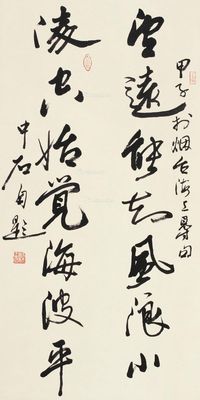 甲子于烟台海上得句
望远能知风浪小
凌空始觉海波平
中石自题